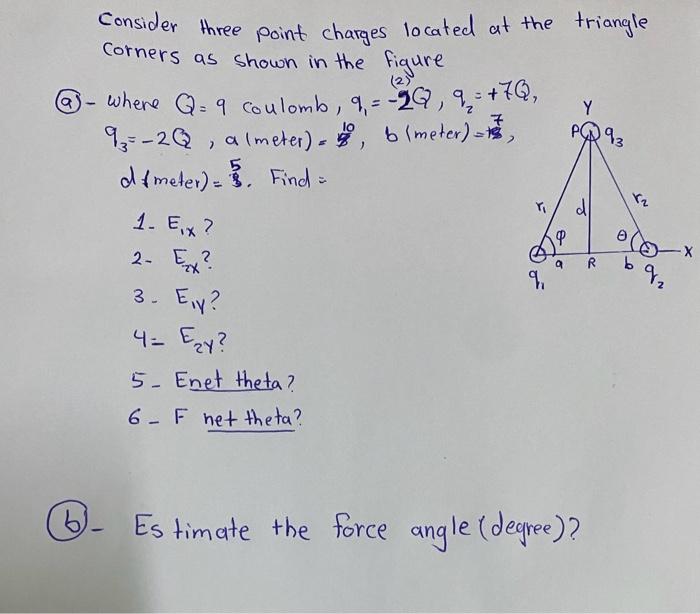 Consider three point charges located at the triangle
Corners as shown in the figure
(2)
(a)- where Q=9 coulomb, q₁=-2Q, q₂=+7Q,
q₃=-2Q, a(meter)=10, b(meter)=7,
d(meter)=5. Find:
1- E₁ₓ?
2- E₂ₓ?
3- E₁y?
4= E₂y?
5- Enet theta?
6- F net theta?
Y
P q₃
r₁ d r₂
φ θ
a R b X
q₁ q₂
(b)- Estimate the force angle (degree)?